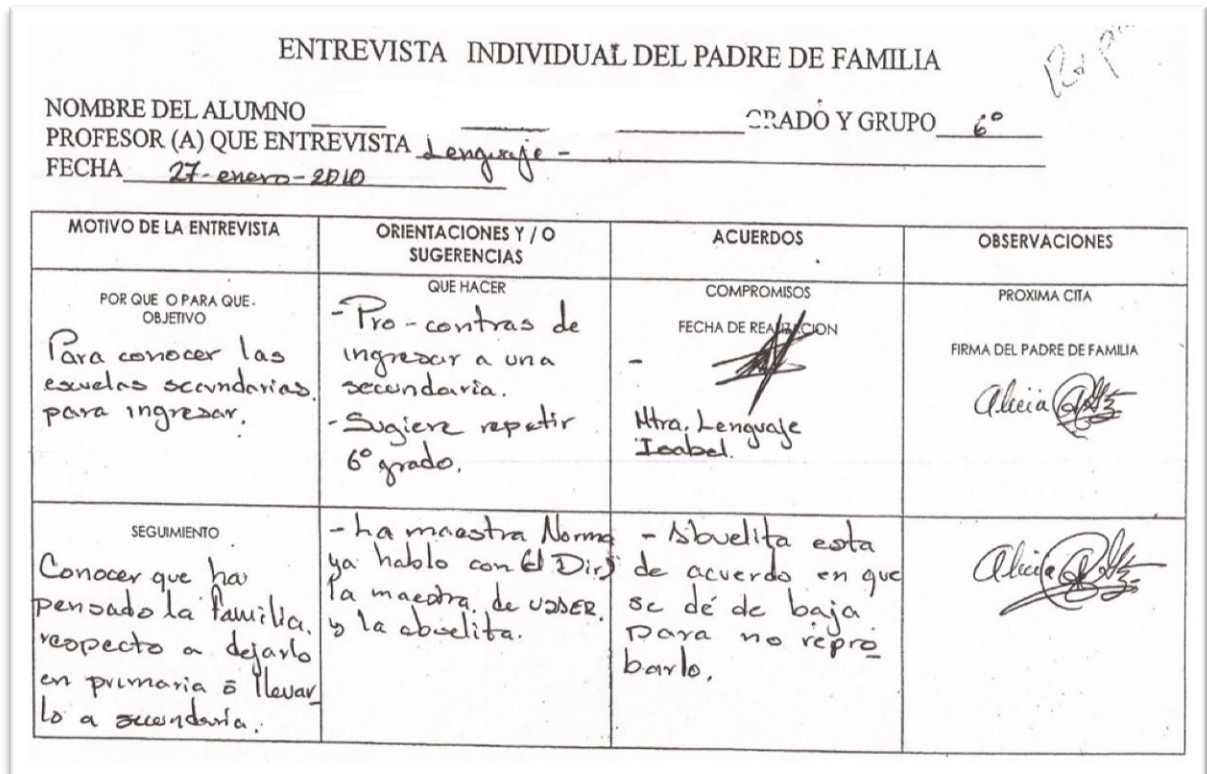 ENTREVISTA INDIVIDUAL DEL PADRE DE FAMILIA
NOMBRE DEL ALUMNO GRADO Y GRUPO 6°
PROFESOR (A) QUE ENTREVISTA Lenguaje -
FECHA 27-enero-2010
MOTIVO DE LA ENTREVISTA
ORIENTACIONES Y / O
SUGERENCIAS
ACUERDOS
OBSERVACIONES
POR QUE O PARA QUE.
OBJETIVO
Para conocer las
escuelas secundarias.
para ingresar.
QUE HACER
- Pro-contras de
ingresar a una
secundaria.
- Sugiere repetir
6° grado.
COMPROMISOS
FECHA DE REALIZACION
-
Mtra. Lenguaje
Isabel.
PROXIMA CITA
FIRMA DEL PADRE DE FAMILIA
Alicia
SEGUIMIENTO
Conocer que ha
pensado la familia.
respecto a dejarlo
en primaria ó llevar
lo a secundaria.
- La maestra Norma
ya hablo con el Dir.
la maestra de
y la abuelita.
- Abuelita esta
de acuerdo en que
se dé de baja
para no repro
barlo.
Alicia